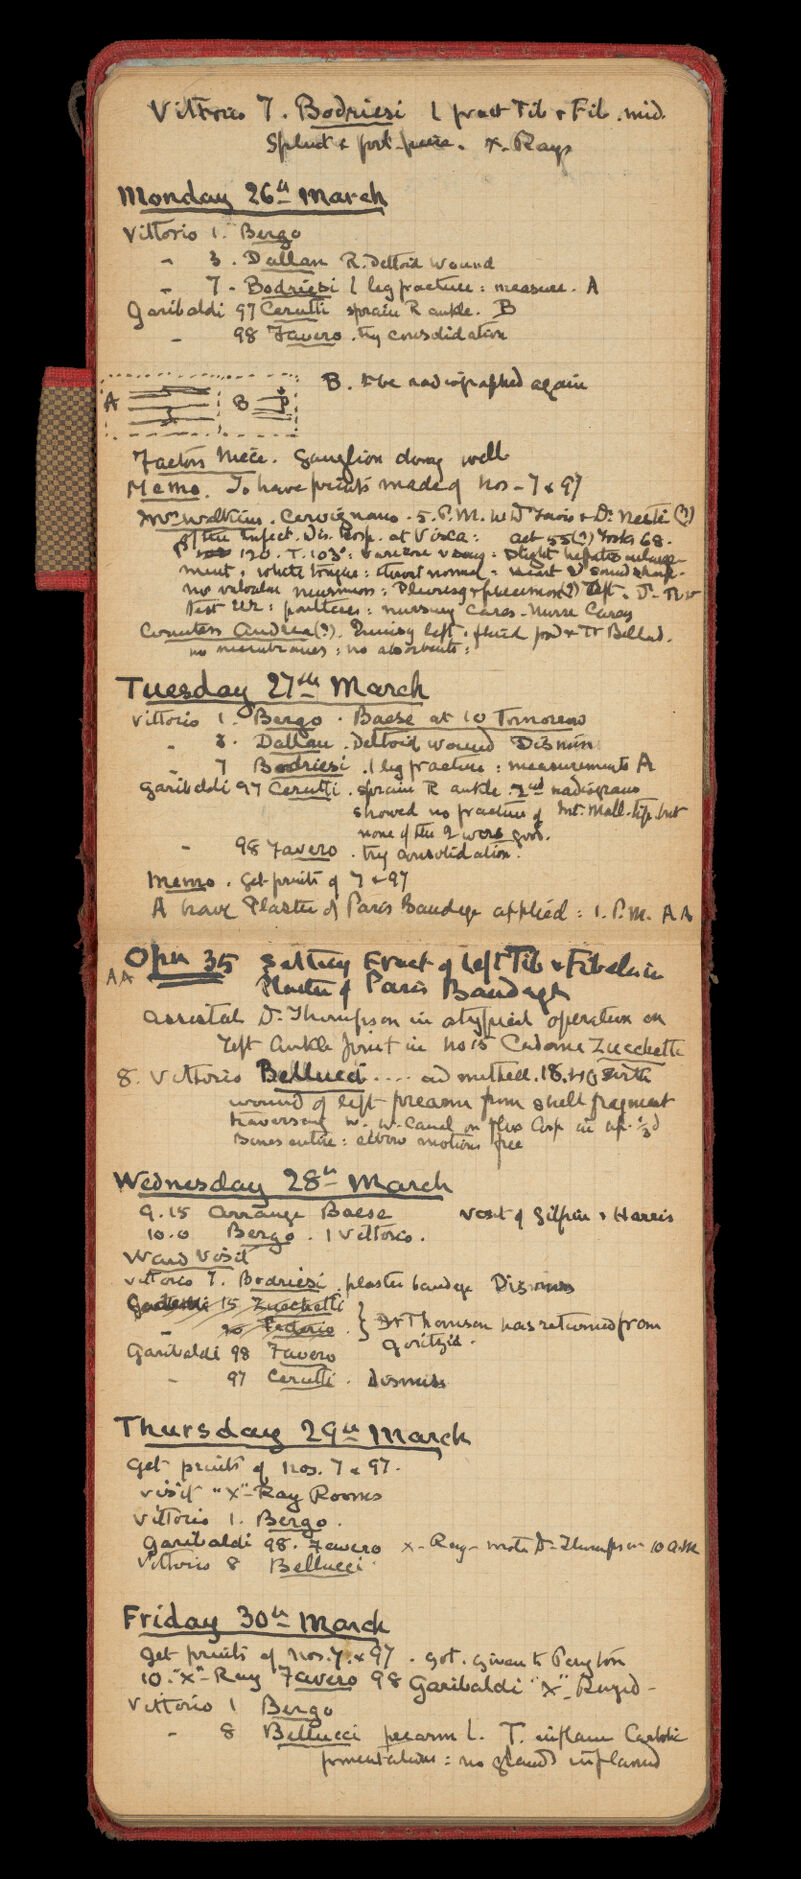 Vittorio 7. Bodriesi l fract Tib & Fib. mid.
Splint & X-Rays
Monday 26th March
Vittorio 1. Bergo
" 3. Dallan R. Deltoid wound
" 7. Bodriesi l leg fracture: measure. A
Garibaldi 97 Cerutti sprain R ankle. B
" 98 Favero. try consolidation
A B B. to be radiographed again
Ganglion doing well
Memo. To have prints made of Nos. 7 & 97
Mrs Watkins. Cervignano. 5. P.M. W Dr & Dr Nesti (?)
of the Infect. Dis. Hosp. at Visca: aet 55(?) looks 68.
P 120. T. 103°: varicose veins: slight hepatic enlarge-
ment, white tongue: throat normal: heart 2nd sound sharp.
no valvular murmurs: Pleurisy & pneumon(?) left.
poultices: nursing cares. Nurse Carey
Countess Andrea(?). Quinsy left. fluid food & Tr Bellad.
no membranes: no abscess:
Tuesday 27th March
Vittorio 1. Bergo. Baese at 10 Tomorrow
" 3. Dallan. Deltoid wound Dismiss
" 7 Bodriesi. l leg fracture: measurements A
Garibaldi 97 Cerutti. sprain R ankle. 2nd radiogram
showed no fracture of Int. Mall. tip. but
none of the 2 were good.
" 98 Favero. try consolidation.
Memo. Get prints of 7 & 97
A have Plaster of Paris Bandage applied: 1. P.M. AA
AA Opn 35 Setting Fract of left Tib & Fibula in
Plaster of Paris Bandage
Assisted Dr Thompson in atypical operation on
left Ankle Joint in No 15 Cadorna Zucchetti
8. Vittorio Bellucci .... admitted. 18. with
wound of left forearm from shell fragment
traversing w. w. canal on flex asp in up. 1/3d
Bones entire: elbow motions free
Wednesday 28th March
9.15 Arrange Baese Visit of Gilpin & Harris
10.0 Bergo. 1 Vittorio.
Ward Visit
Vittorio 7. Bodriesi. plaster bandage Dismiss
15 Zucchetti
" 20 Federio } Dr Thomson has returned from
Goritzia.
Garibaldi 98 Favero
" 97 Cerutti. Dismiss
Thursday 29th March
Get prints of Nos. 7 & 97.
Visit "X"-Ray Rooms
Vittorio 1. Bergo.
Garibaldi 98. Favero X-Ray- wrote Dr Thompson 10 a.m
Vittorio 8 Bellucci
Friday 30th March
Get prints of Nos. 7. & 97. Got. given to
10. "X"-Ray Favero 98 Garibaldi "X"-Rayed-
Vittorio 1 Bergo
" 8 Bellucci forearm L. T. inflam Carbolic
fomentations: no glands inflamed